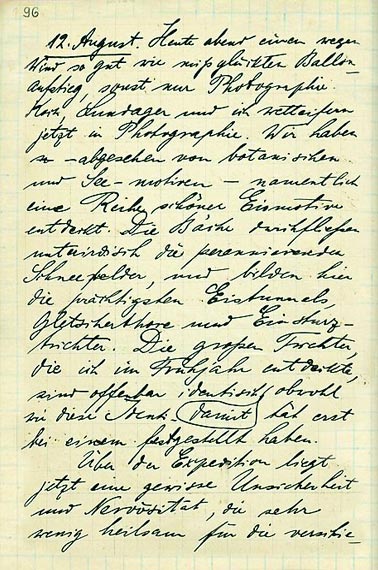 96
12. August. Heute abend einen wegen
Wind so gut wie mißglückten Ballon-
aufstieg, sonst nur Photographie.
Koch, Lundager und ich wetteifern
jetzt in Photographie. Wir haben
so – abgesehen von botanischen
und See-motiven – namentlich
eine Reihe schöner Eismotive
entdeckt. Die Bäche durchfließen
unterirdisch die perennierenden
Schneefelder, und bilden hier
die prächtigsten Eistunnels,
Gletscherthore und Einsturz-
trichter. Die großen Trichter,
die ich im Frühjahr entdeckte,
sind offenbar identisch, obwohl
wir diese damit erst
bei einem festgestellt haben.
Über der Expedition liegt
jetzt eine gewisse Unsicherheit
und Nervösität, die sehr
wenig heilsam für die verschie-